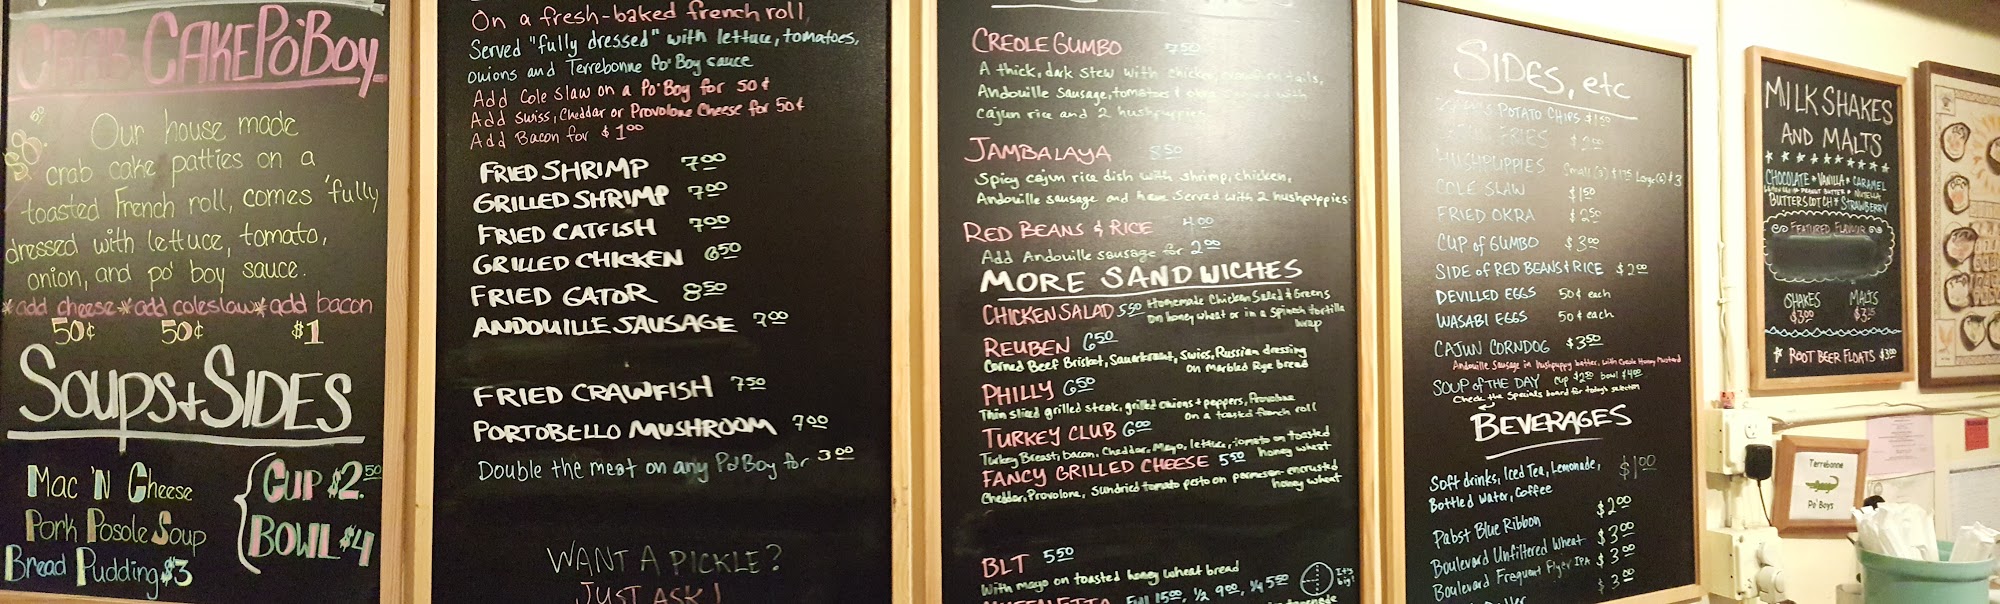 CRAB CAKE PO'BOY
Our house made
crab cake patties on a
toasted French roll, comes 'fully
dressed with lettuce, tomato,
onion, and po' boy sauce.
*add cheese*add coleslaw*add bacon
50¢ 50¢ $1
SOUPS + SIDES
Mac 'N Cheese
Pork Posole Soup
Bread Pudding $3
CUP $2.50
BOWL $4
On a fresh-baked french roll,
Served "fully dressed" with lettuce, tomatoes,
onions and Terrebonne Po' Boy sauce
Add Cole Slaw on a Po'Boy for 50¢
Add Swiss, Cheddar or Provolone Cheese for 50¢
Add Bacon for $1.00
FRIED SHRIMP 7.00
GRILLED SHRIMP 7.00
FRIED CATFISH 7.00
GRILLED CHICKEN 6.50
FRIED GATOR 8.50
ANDOUILLE SAUSAGE 7.00
FRIED CRAWFISH 7.50
PORTOBELLO MUSHROOM 7.00
Double the meat on any Po'Boy for 3.00
WANT A PICKLE?
JUST ASK!
CREOLE GUMBO 7.50
A thick, dark stew with chicken, crawfish tails,
Andouille Sausage, tomatoes & okra served with
cajun rice and 2 hushpuppies
JAMBALAYA 8.50
Spicy cajun rice dish with shrimp, chicken,
Andouille sausage and ham. Served with 2 hushpuppies
RED BEANS & RICE 4.00
Add Andouille sausage for 2.00
MORE SANDWICHES
CHICKEN SALAD 5.50 Homemade Chicken Salad & Greens
on honey wheat or in a Spinach tortilla
wrap
REUBEN 6.50
Corned Beef Brisket, Sauerkraut, Swiss, Russian dressing
on Marbled Rye bread
PHILLY 6.50
Thin sliced grilled steak, grilled onions + peppers, Provolone
on a toasted french roll
TURKEY CLUB 6.00
Turkey Breast, bacon, Cheddar, Mayo, lettuce, tomato on toasted
honey wheat
FANCY GRILLED CHEESE 5.50
Cheddar, Provolone, Sundried tomato pesto on parmesan-encrusted
honey wheat
BLT 5.50
With mayo on toasted honey wheat bread
It's
big!
MUFFELETTA Full 15.00, 1/2 9.00, 1/4 5.50
SIDES, etc
POTATO CHIPS $1.50
FRIES $2.00
HUSHPUPPIES Small (3) $1.75 Large (6) $3
COLE SLAW $1.50
FRIED OKRA $2.50
CUP of GUMBO $3.00
SIDE of RED BEANS & RICE $2.00
DEVILLED EGGS 50¢ each
WASABI EGGS 50¢ each
CAJUN CORNDOG $3.50
Andouille Sausage in hushpuppy batter, with Creole Honey Mustard
SOUP of THE DAY cup $2.50 bowl $4.00
Check the Specials board for today's selection
BEVERAGES
Soft drinks, Iced Tea, Lemonade, $1.00
Bottled Water, Coffee
Pabst Blue Ribbon $2.00
Boulevard Unfiltered Wheat $3.00
Boulevard Frequent Flyer IPA $3.00
$3.00
MILKSHAKES
AND MALTS
CHOCOLATE * VANILLA * CARAMEL
PEANUT BUTTER * NUTELLA
BUTTERSCOTCH * STRAWBERRY
FEATURED FLAVOUR
SHAKES MALTS
$3.00 $3.25
ROOT BEER FLOATS $3.00
Terrebonne
Po' Boys